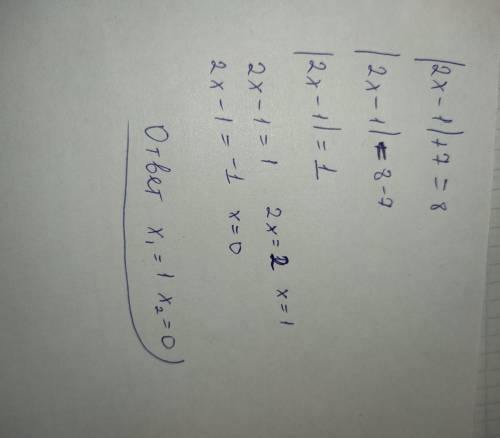 |2x-1|+7=8
|2x-1|=8-7
|2x-1|=1
2x-1=1 2x=2 x=1
2x-1=-1 x=0
Ответ x₁=1 x₂=0